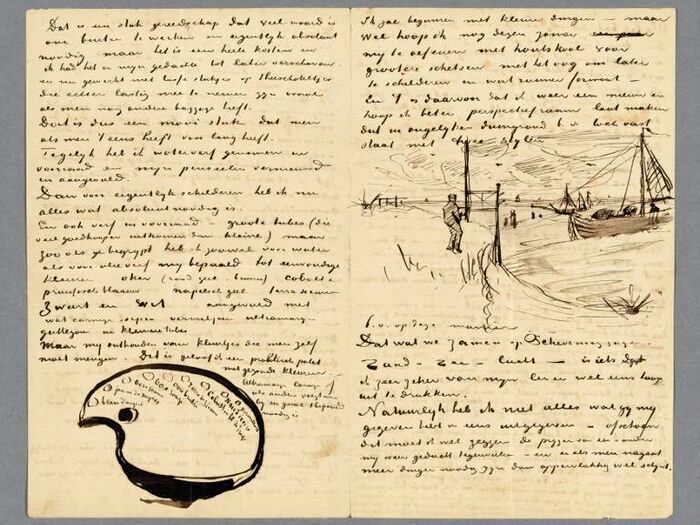 Dat is een stuk gereedschap dat veel waard is
om buiten te werken en eigentlijk absoluut
noodig maar het is een heele kosten en
ik had het in mijn gedachte tot later verschoven
en nu gewerkt met losse stukjes op theeschoteltjes
die echter lastig mee te nemen zijn vooral
als men nog andere baggage heeft.
Dat is dus een mooi stuk dat men
als men 't eens heeft voor lang heeft.
Tegelijk heb ik waterverf genomen en
voorraad en mijn penseelen vernieuwd
en aangevuld.
Dan voor eigentlijk schilderen heb ik nu
alles wat absoluut noodig is.
En ook verf in voorraad – groote tubes (die
veel goedkooper uitkomen dan kleine) maar
zoo als ge begrijpt heb ik zoowel voor water
als voor olieverf mij bepaald tot eenvoudige
kleuren oker (rood geel – bruin) cobalt &
pruissisch blaauw napelsch geel terra sienna
Zwart en Wit aangevuld met
wat carmijn sepia vermiljoen ultramarijn
guttegom in kleinere tubes
Maar mij onthouden voor kleurtjes die men zelf
moet mengen. Dit is geloof ik een praktiek palet
met gezonde kleuren –
ultramarijn carmijn of
als anders
noodig is
Ik zal beginnen met kleine dingen – maar
wel hoop ik nog dezen zomer
mij te oefenen met houtskool voor
grootere schetsen met het oog om later
te schilderen en wat ruimer formaat –
En 't is daarvoor dat ik weer een nieuw en
hoop ik beter perspectiefraam laat maken
dat in ongelijken duingrond b.v. toch vast
staat met twee stylen
b.v. op deze manier
Dat wat we zamen op Schevening zagen
Zand – Zee – Lucht – is iets dat
ik zeer zeker van mijn leven wel eens hoop
uit te drukken.
Natuurlijk heb ik niet alles wat gij mij
gegeven hebt in eens uitgegeven – ofschoon
dat moet ik wel zeggen de prijzen van een en ander
mij weer geducht tegenvielen – en er als men nagaat
meer dingen noodig zijn dan oppervlakkig wel schijnt.